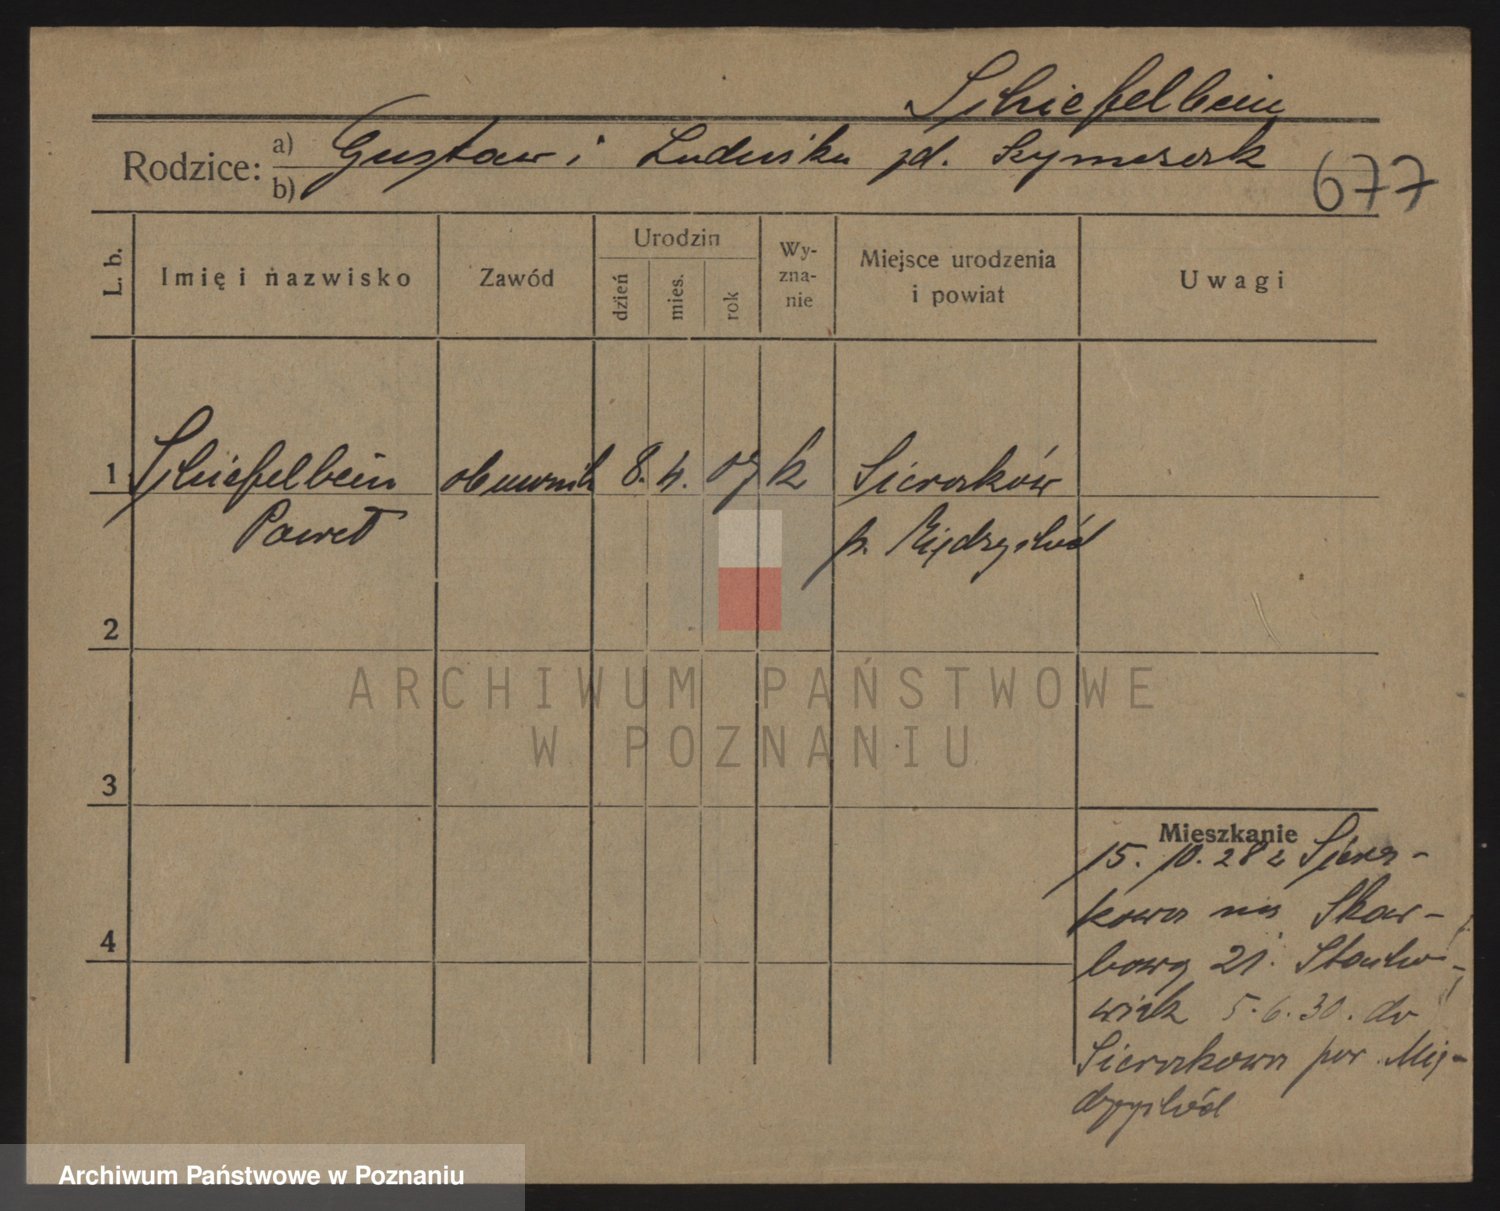 Schiefelbein
Rodzice: a) Gustaw i Ludwika zd. Szymczak
b)
677
L. b.
Imię i nazwisko
Zawód
Urodzin
dzień
mies.
rok
Wy-
zna-
nie
Miejsce urodzenia
i powiat
Uwagi
1 Schiefelbein obuwnik 8. 4. 07 k Sieraków
Paweł p. Międzychód
2
3
4
Mieszkanie
15. 10. 28 z Siera-
kowa na Skar-
bową 21.
wiak 5.6.30. do
Sierakowa pow. Mię-
dzychód
ARCHIWUM PAŃSTWOWE
W POZNANIU
Archiwum Państwowe w Poznaniu